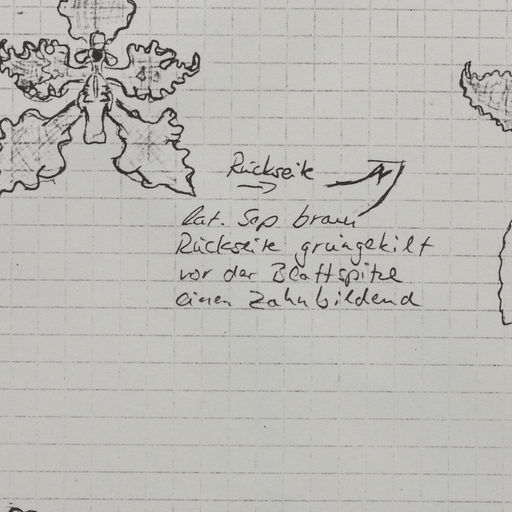 Rückseite
lat. Sep braun
Rückseite grüngekilt
vor der Blattspitze
einen Zahn bildend